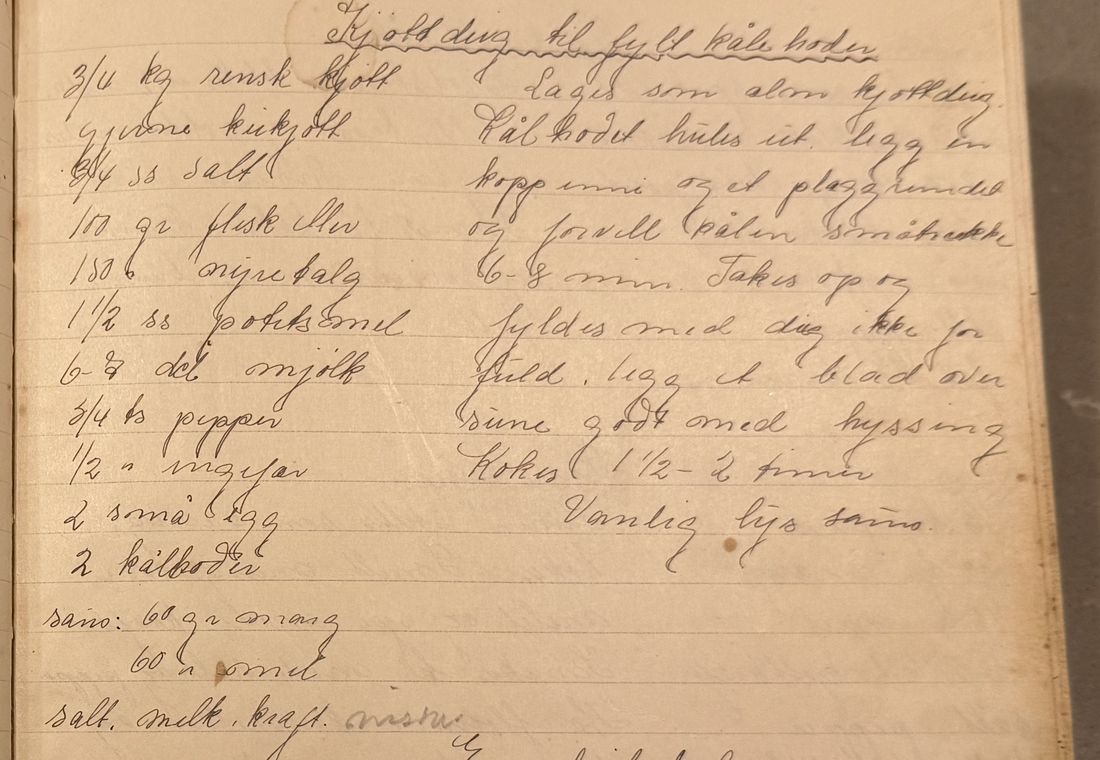 Kjøtt deig til fyllt kåle hoder
3/4 kg rensk kjøtt
gjerne kukjøtt
3/4 ss salt
100 gr flesk eller
150 " nyretalg
1 1/2 ss potetsmel
6-8 del mjølk
3/4 ts pepper
1/2 " ingefær
2 små egg
2 kålhoder
saus: 60 gr marg
60 " mel
salt. melk. kraft.
Lages som alm kjøttdeig.
Kålhodet hules ut. legg en
kopp inni og et plagg rundet
og forvell kålen
6-8 min. Takes op og
fyldes med deig ikke for
fuld. legg et blad over
surre godt med hyssing
Kokes 1 1/2 - 2 timer
Vanlig lys saus.